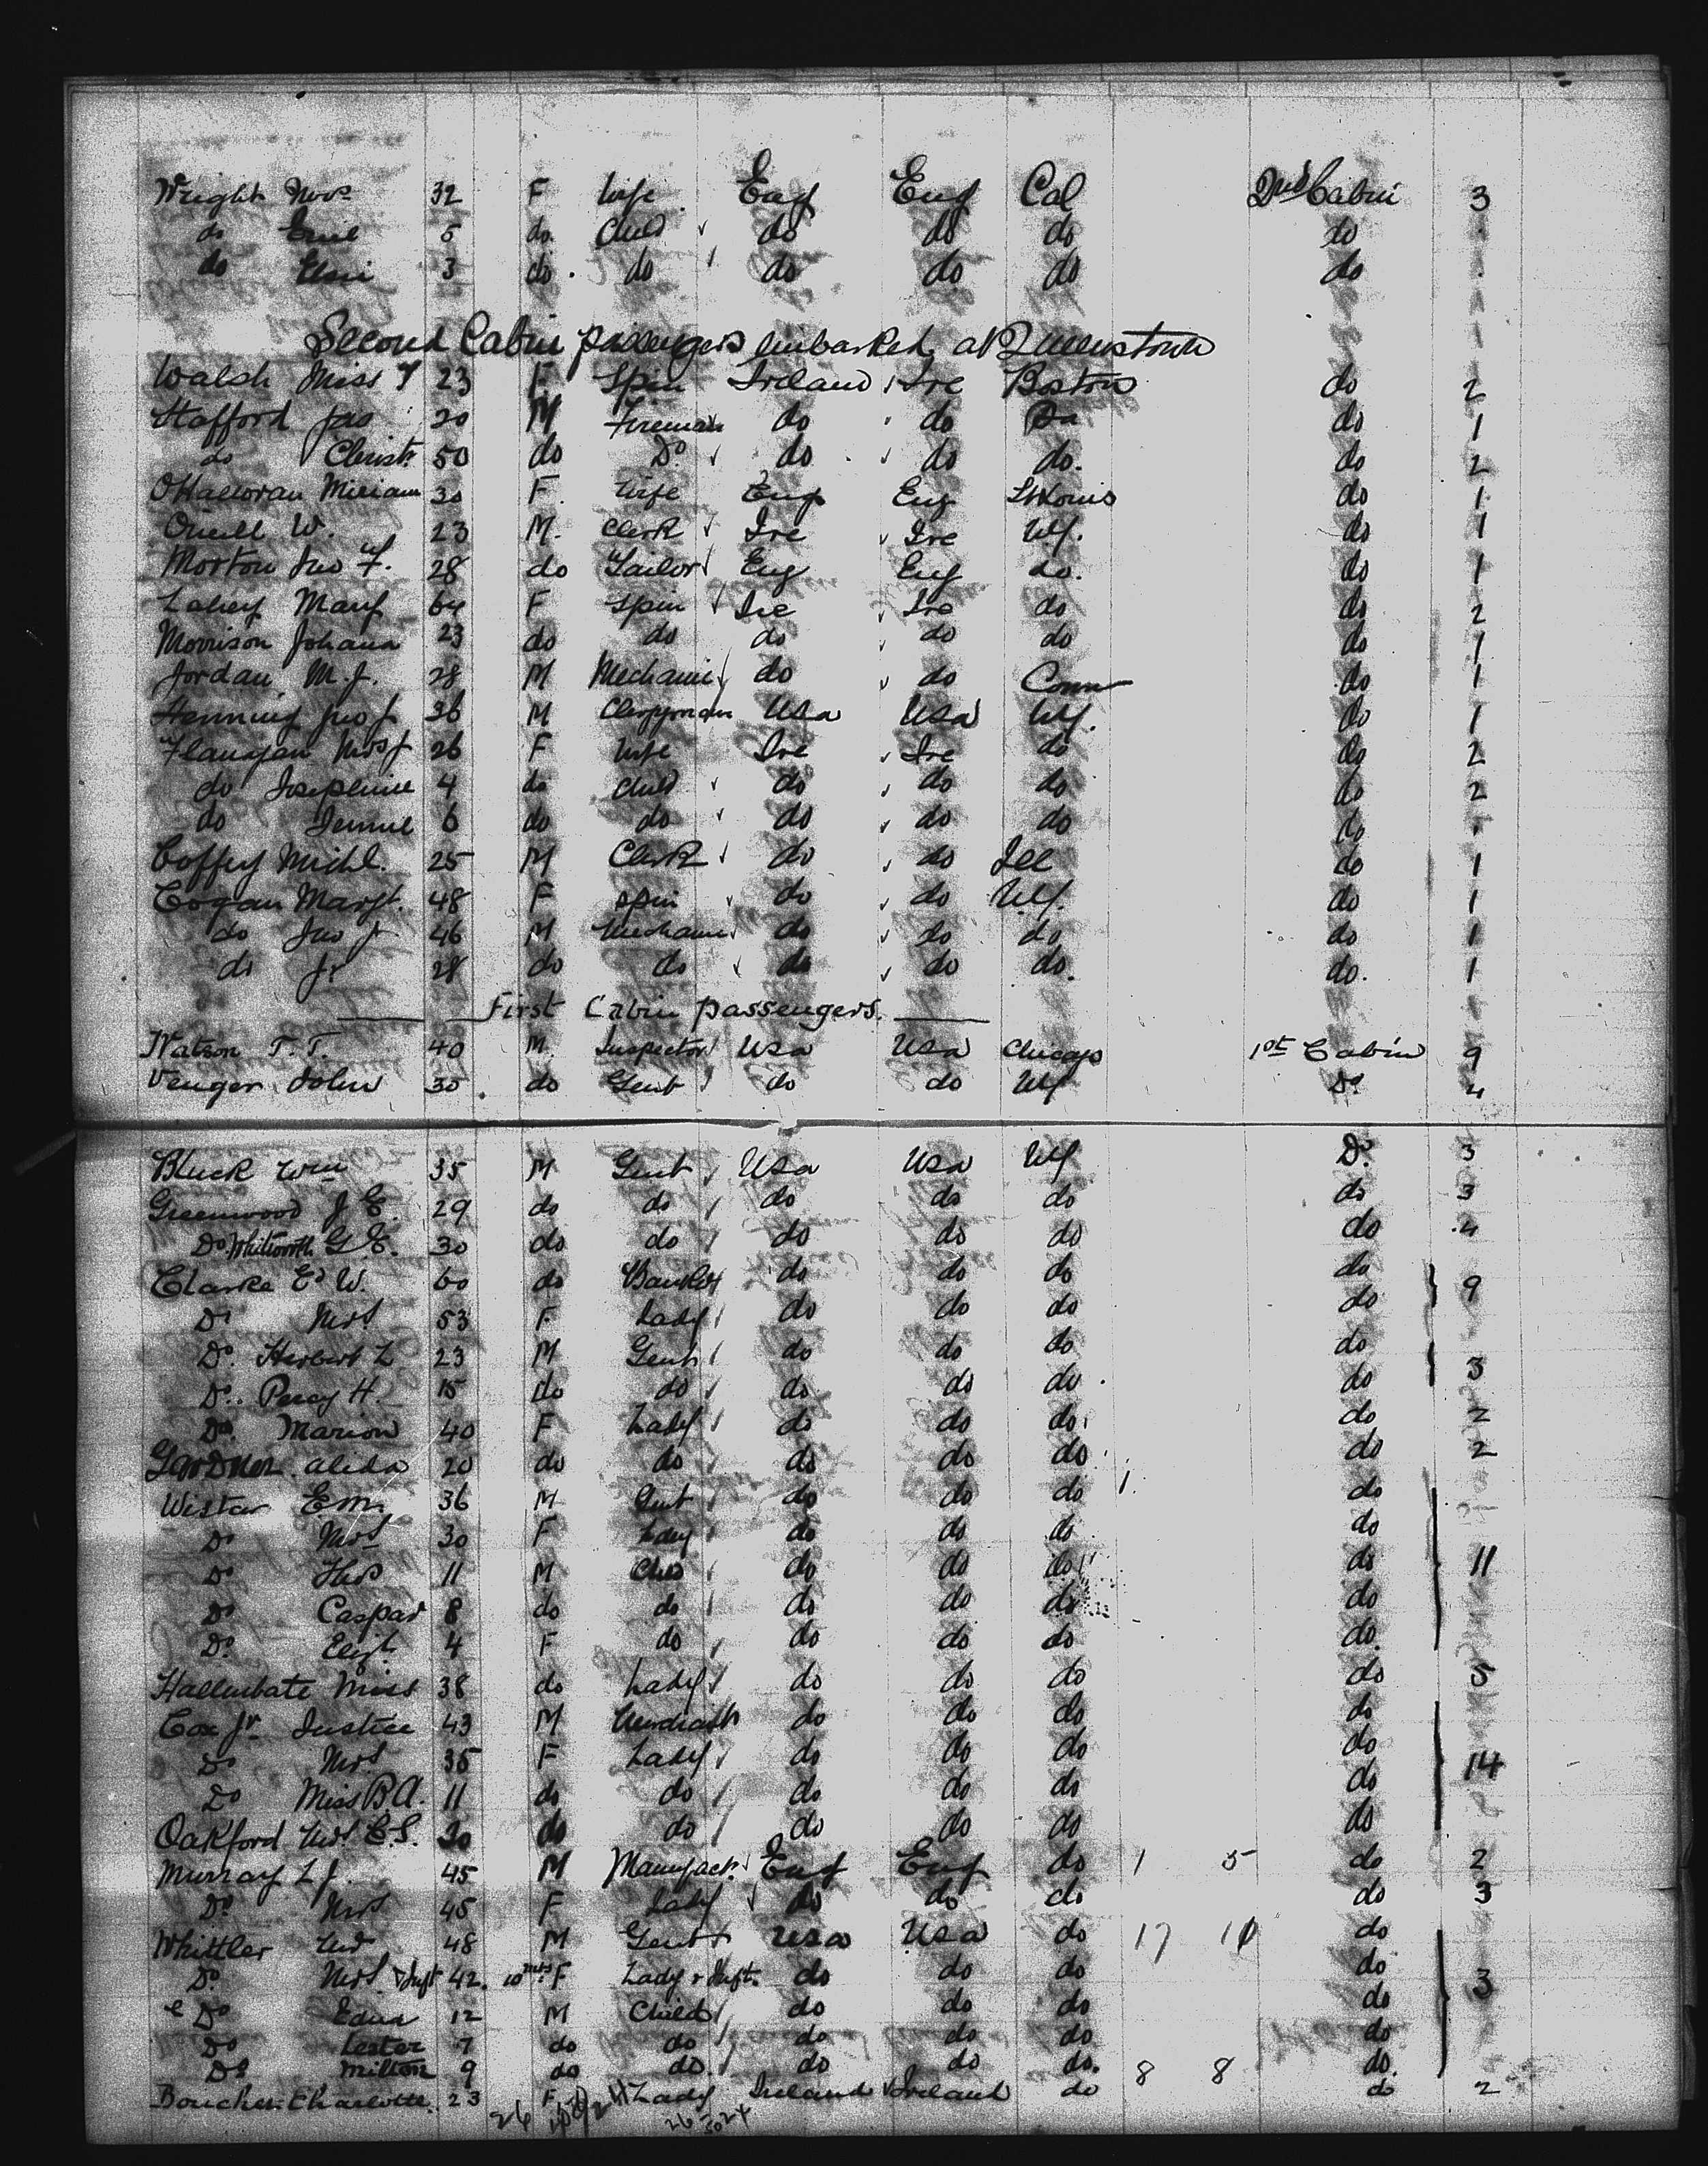 Wright Mrs 32 F Wife Eng Eng Cal 2nd Cabin 3
do 5 do. Child do do do do
do Elsie 3 do. do do do do do
Second Cabin passengers embarked at Queenstown
Walsh Miss 23 F Spin Ireland Ire Boston do 2
Stafford Jas 20 M Fireman do do Pa do 1
do Christr 50 do Do do do do. do 2
OHalloran Miriam 30 F. Wife Eng Eng St Louis do 1
Oneill W. 23 M. Clerk Ire Ire NY. do 1
Morton Jno F. 28 do Tailor Eng Eng do. do 1
Lahey Mary 64 F Spin Ire Ire do do 2
Morrison Johana 23 do do do do do do 1
Jordan M.J. 28 M Mechanic do do Conn do 1
Henning Jno J 36 M Clergyman USA USA NY. do 1
Flanagan Mrs J 26 F Wife Ire Ire do do 2
do Josephine 4 do Child do do do do 2
do Jennie 6 do do do do do do
Coffey Michl. 25 M Clerk do do Ill do 1
Cogan Margt. 48 F Spin do do NY. do 1
do Jno J 46 M Mechanic do do do do 1
do Jr 28 do do do do do. do. 1
First Cabin passengers.
Watson T.T. 40 M. Inspector USA USA Chicago 1st Cabin 9
Venger John 30 do Gent do do NY Do 4
Bluck Wm 35 M Gent USA USA NY Do 3
Greenwood J E. 29 do do do do do do 3
Do Whitworth G E. 30 do do do do do do 4
Clarke Ed W. 60 do Banker do do do do 9
Do Mrs 53 F Lady do do do do
Do. Herbert L 23 M Gent do do do do 3
Do. Percy H. 15 do do do do do do
Do. Marion 40 F Lady do do do do 2
Gardner Alida 20 do do do do do do 2
Wistar E.M. 36 M Gent do do do 1 do
Do Mrs 30 F Lady do do do do
Do Thos 11 M Child do do do do 11
Do Caspar 8 do do do do do do
Do. Elizt. 4 F do do do do do.
Miss 38 do Lady do do do do 5
Cox Jr Justice 43 M Merchant do do do do
Do Mrs. 35 F Lady do do do do 14
Do Miss B A. 11 do do do do do do
Oakford Mrs C.S. 30 do do do do do do
Murray L J. 45 M Manufact. Eng Eng do 1 5 do 2
Do Mrs 45 F Lady do do do do 3
Whittler Mr 48 M Gent USA USA do 17 10 do
Do. Mrs & Inft 42. 10 mos F Lady & Inft. do do do do 3
Do Edna 12 M Child do do do do
Do Lester 7 do do do do do do
Do Milton 9 do do do do do. 8 8 do.
Boucher Charlotte. 23 F Lady Ireland Ireland do do 2
26 26